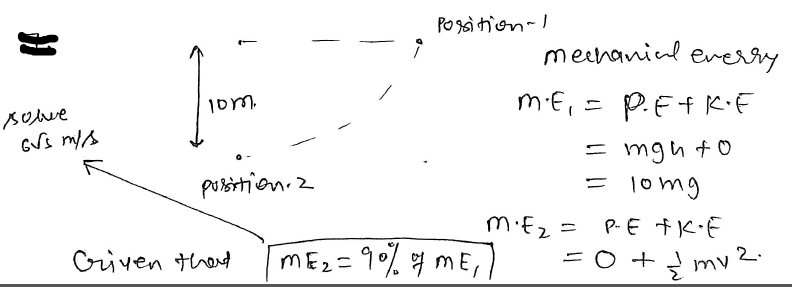 position-1
mechanical energy
10m.
M.E₁ = P.E + K.E
solve
6√5 m/s
= mgh + 0
= 10mg
position.2
M.E₂ = P.E + K.E
= 0 + ½ mv².
Given that
ME₂ = 90% of ME₁